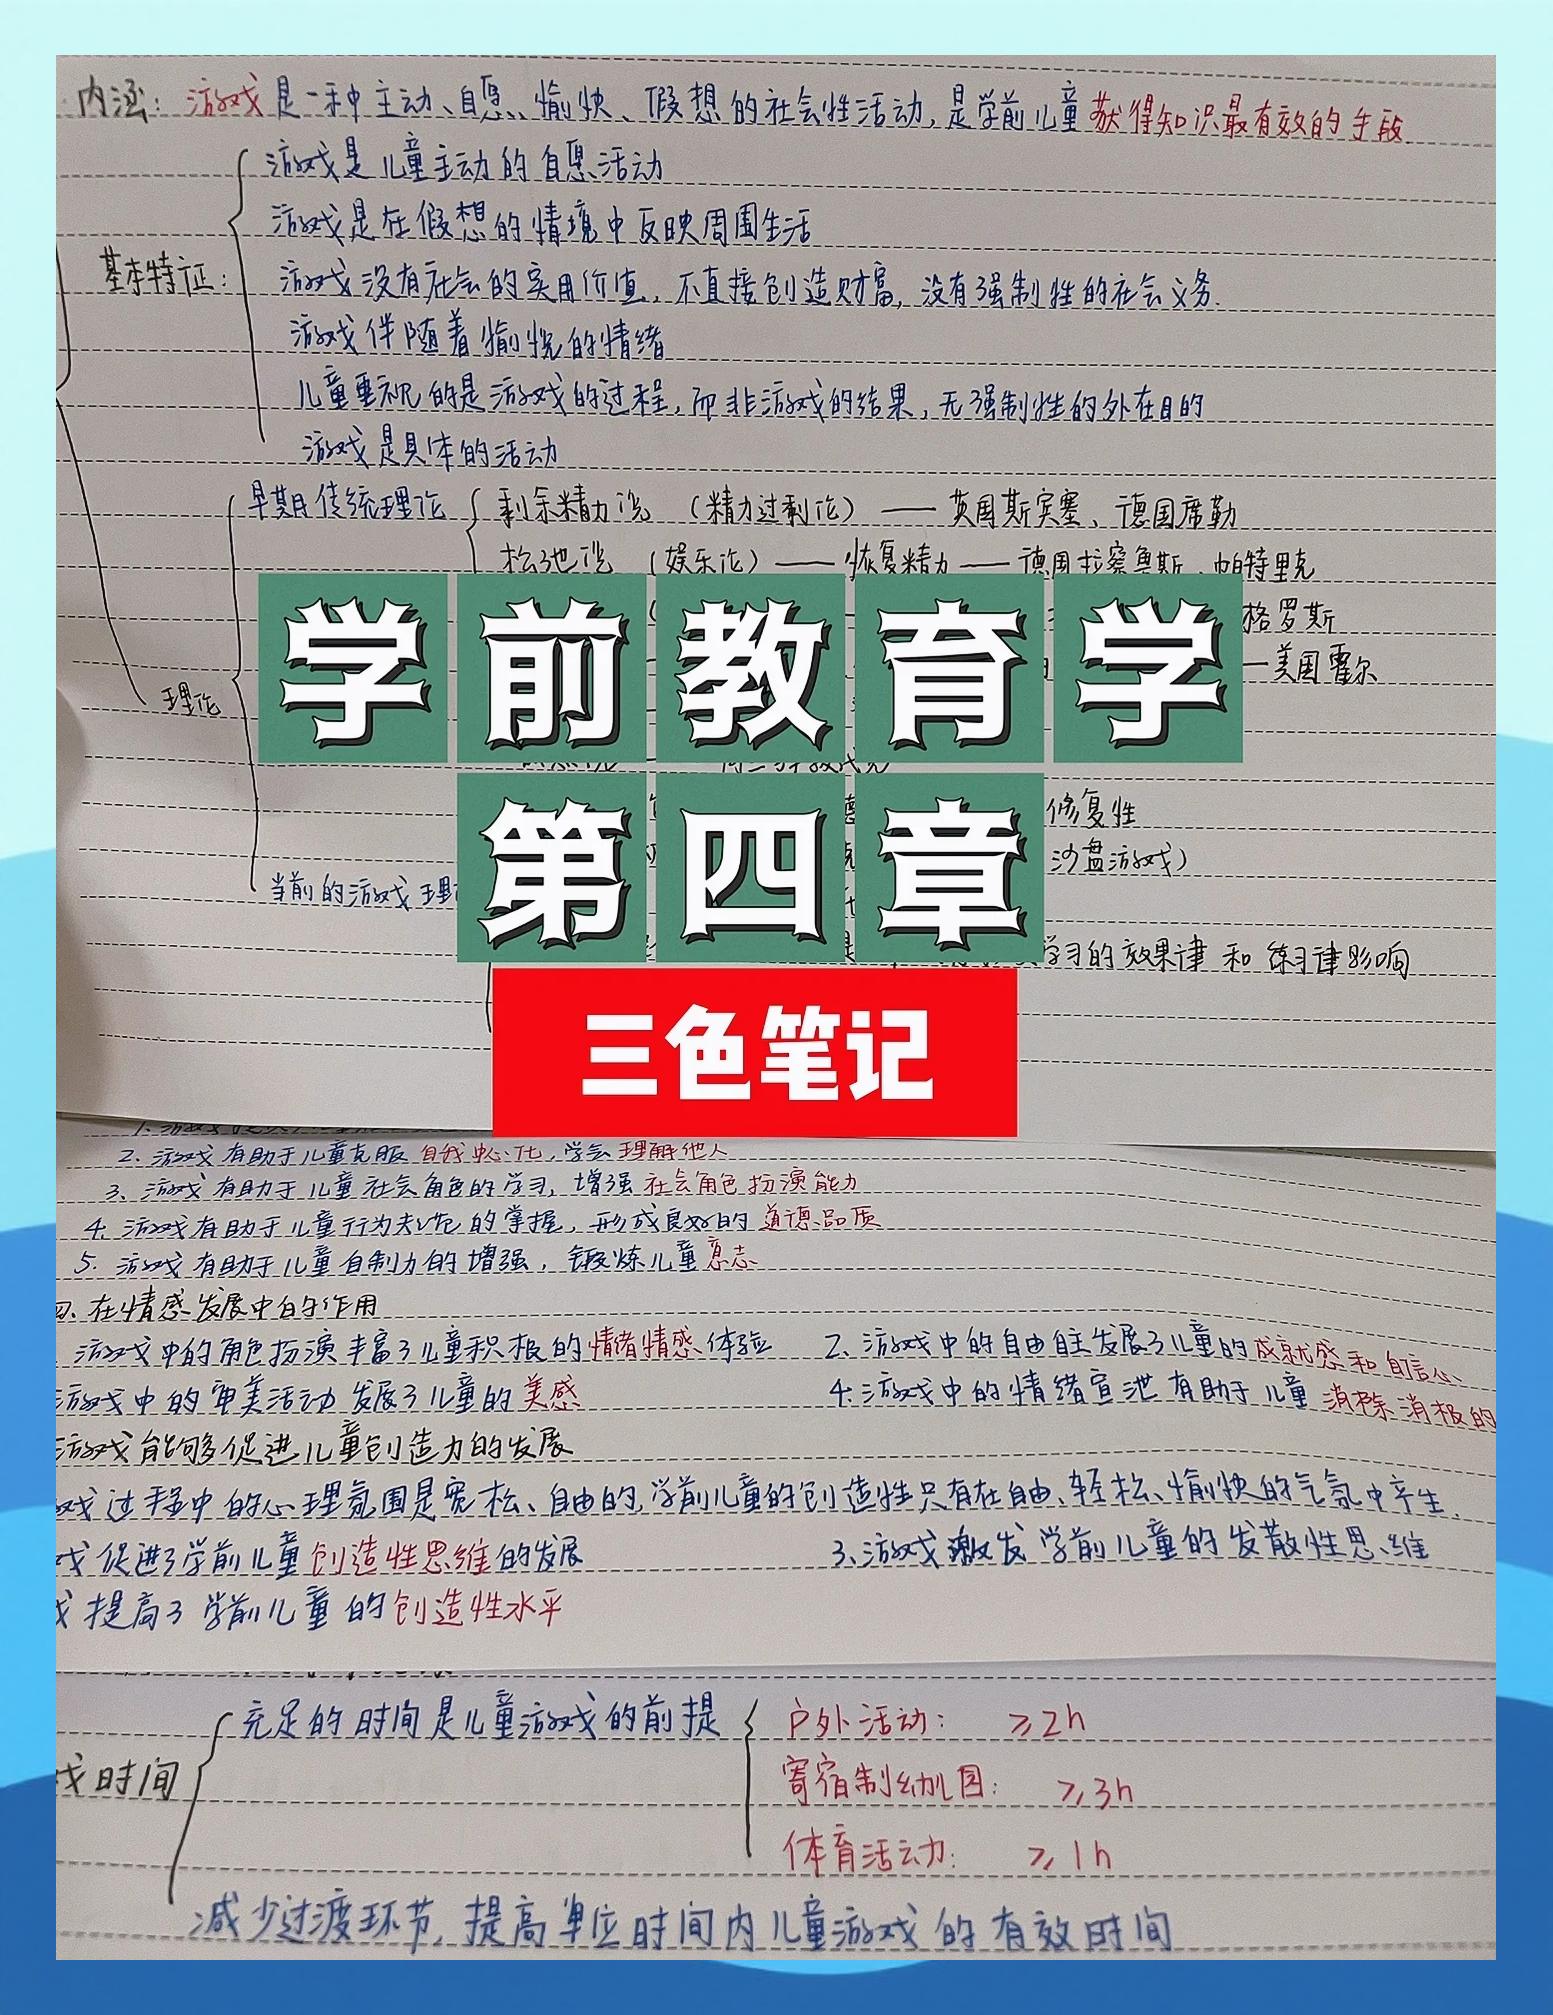 内涵：游戏是一种主动、自愿、愉快、假想的社会性活动，是学前儿童获得知识最有效的手段.
游戏是儿童主动的自愿活动
游戏是在假想的情境中反映周围生活
基本特征：
游戏没有社会的实用价值，不直接创造财富，没有强制性的社会义务.
游戏伴随着愉悦的情绪
儿童重视的是游戏的过程，而非游戏的结果，无强制性的外在目的
游戏是具体的活动
早期传统理论 剩余精力说 （精力过剩论） —— 英国斯宾塞、德国席勒
松弛说 （娱乐论）——恢复精力——德国拉察鲁斯、帕特里克
格罗斯
美国霍尔
理论
修复性
沙盘游戏）
当前的游戏理
学习的效果律 和 练习律影响
学前教育学
第四章
三色笔记
2. 游戏有助于儿童克服自我中心化，学会理解他人
3. 游戏有助于儿童社会角色的学习，增强社会角色扮演能力
4. 游戏有助于儿童行为规范的掌握，形成良好的道德品质
5. 游戏有助于儿童自制力的增强，锻炼儿童意志
四. 在情感发展中的作用
游戏中的角色扮演丰富了儿童积极的情绪情感体验 2. 游戏中的自由自主发展了儿童的成就感和自信心
游戏中的审美活动发展了儿童的美感 4. 游戏中的情绪宣泄有助于儿童消除消极的
游戏能够促进儿童创造力的发展
戏过程中的心理氛围是宽松、自由的，学前儿童的创造性只有在自由、轻松、愉快的气氛中产生.
戏促进了学前儿童创造性思维的发展 3. 游戏激发学前儿童的发散性思维
戏提高了学前儿童的创造性水平
充足的时间是儿童游戏的前提 户外活动： ≥2h
戏时间 寄宿制幼儿园： ≥3h
体育活动： ≥1h
减少过渡环节，提高单位时间内儿童游戏的有效时间